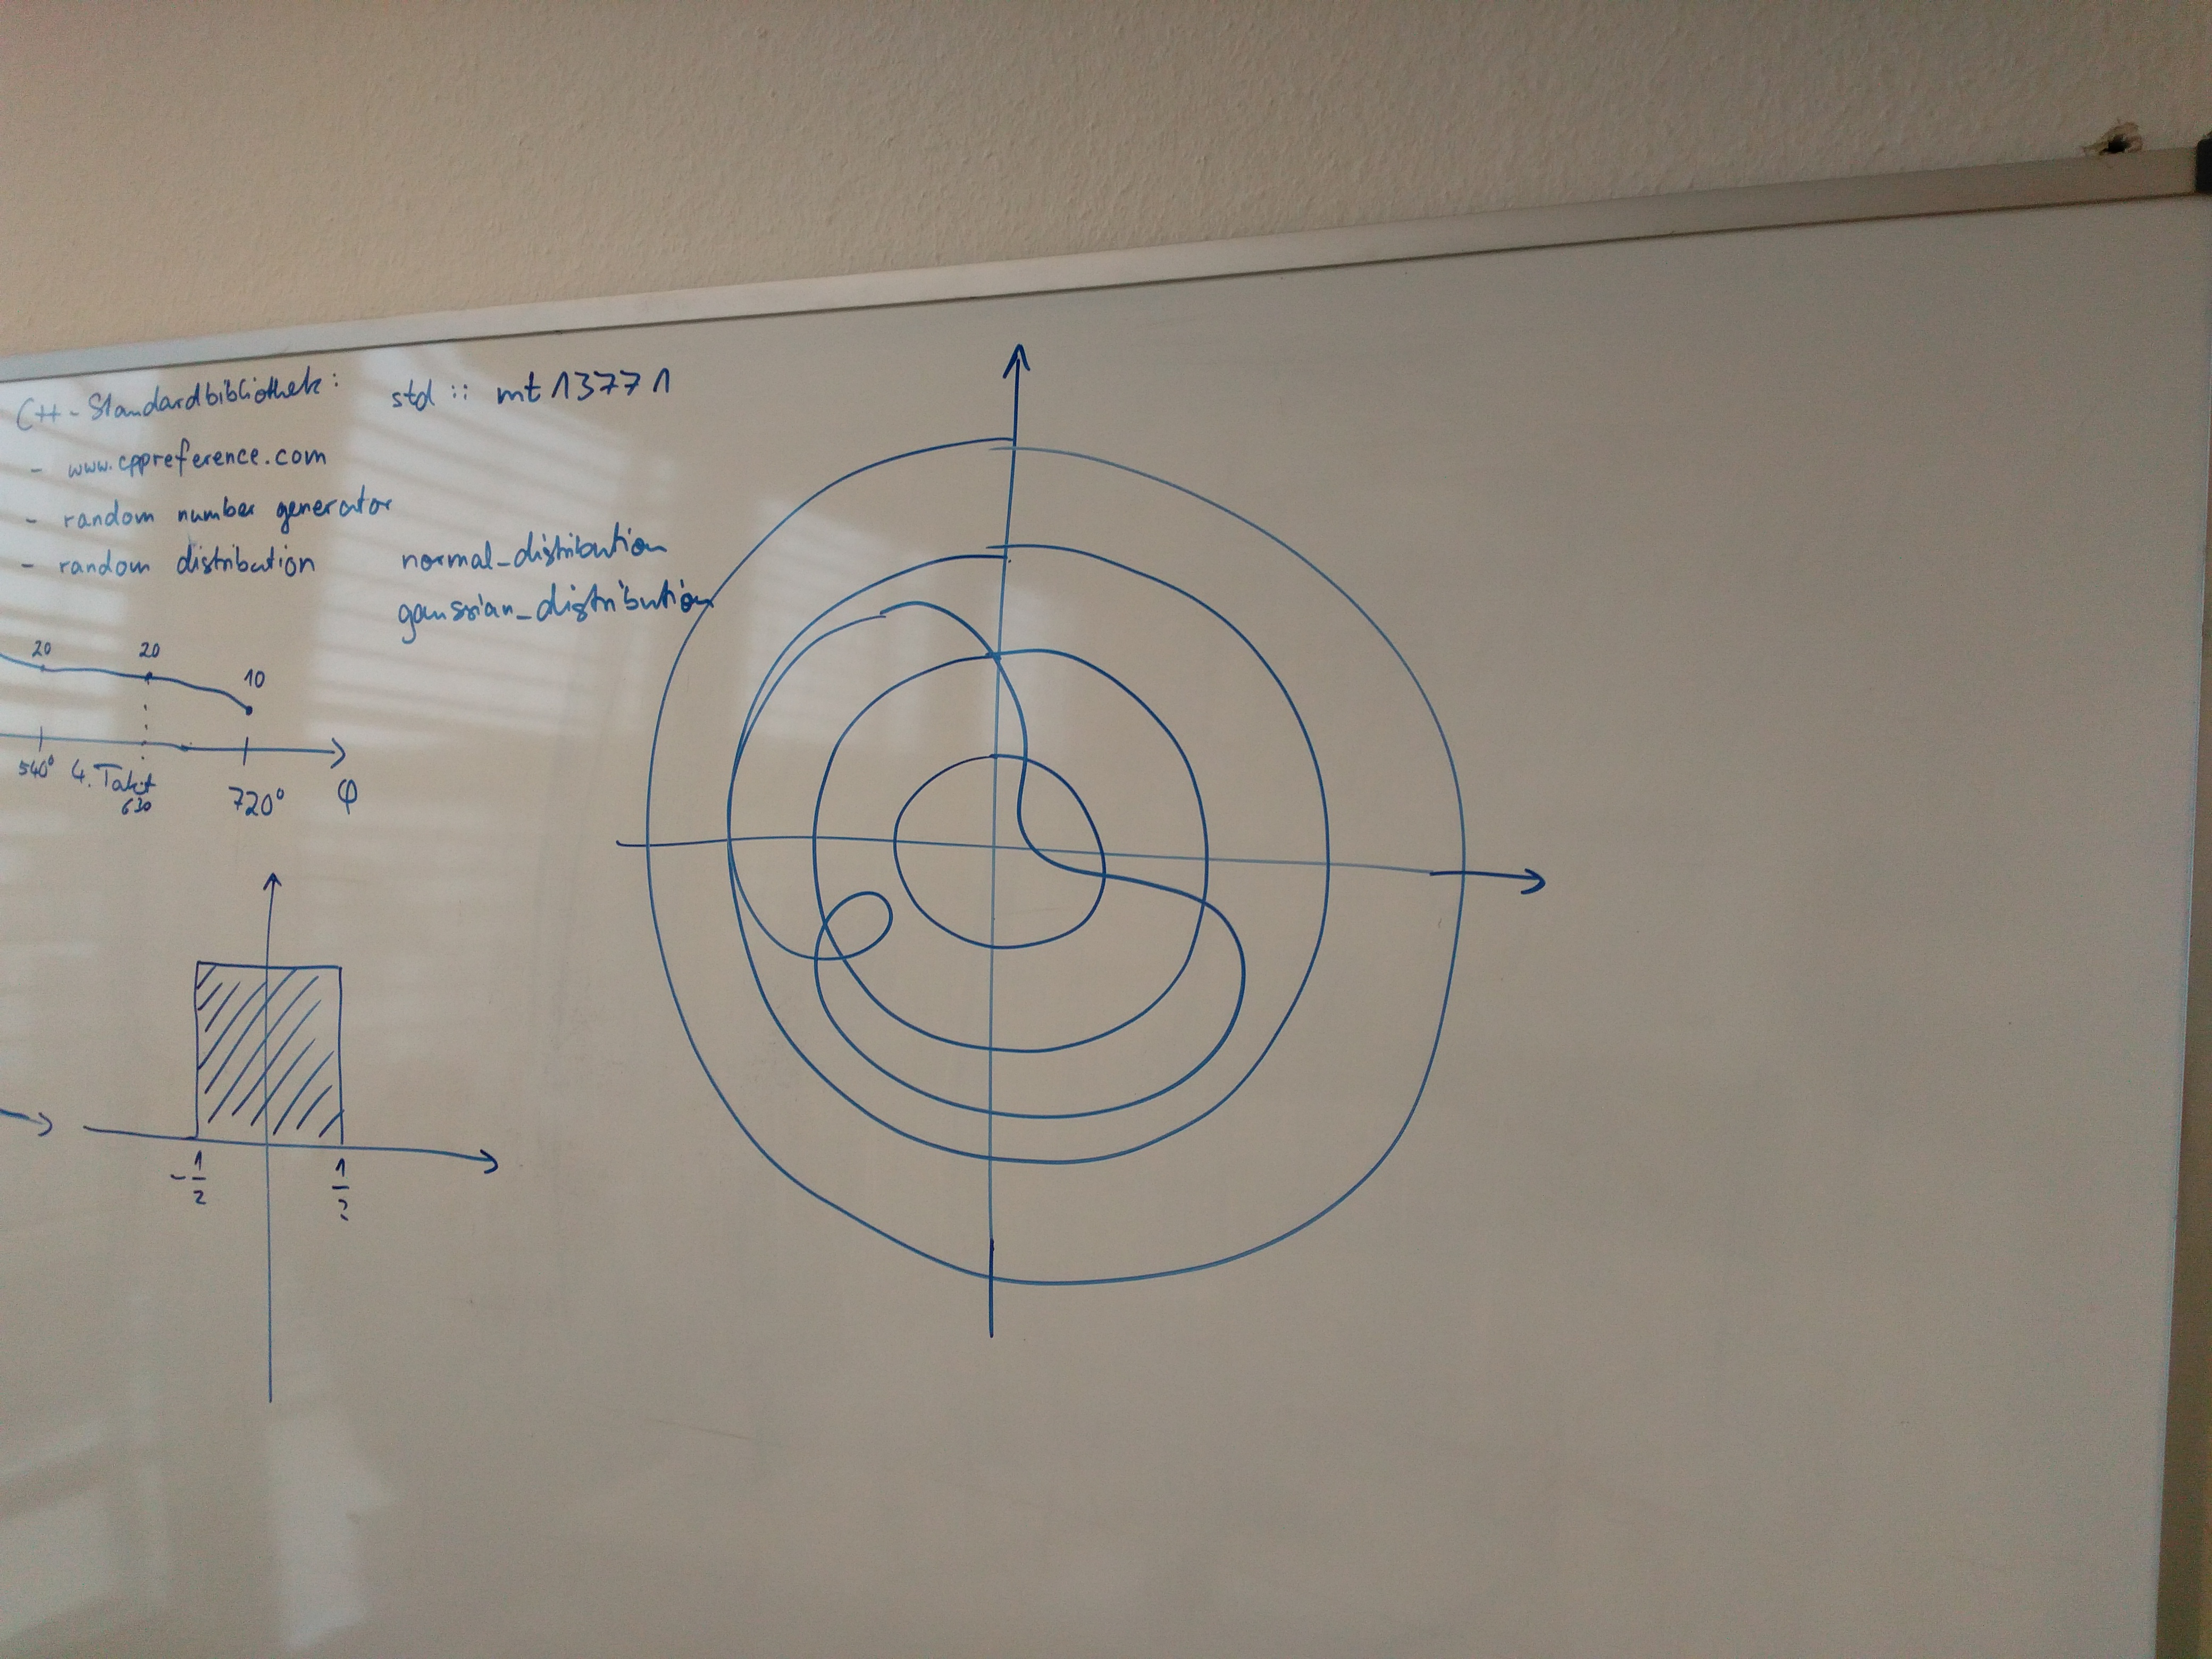 C++-Standardbibliothek: std :: mt 13771
- www.cppreference.com
- random number generator
- random distribution normal_distribution
gaussian_distribution
20 20 10
540° 4. Takt 630 720° φ
-1/2 1/2